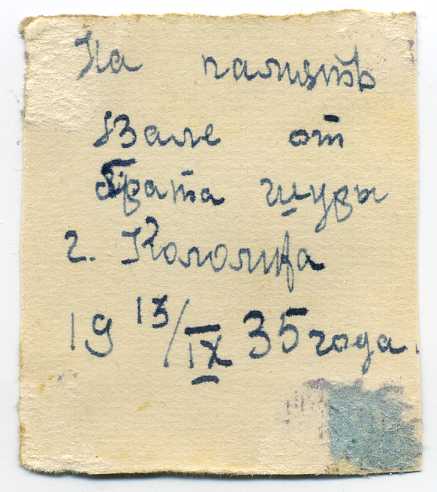 На память
Вале от
брата Шуры
г. Коломна
19 13/IX 35 года.